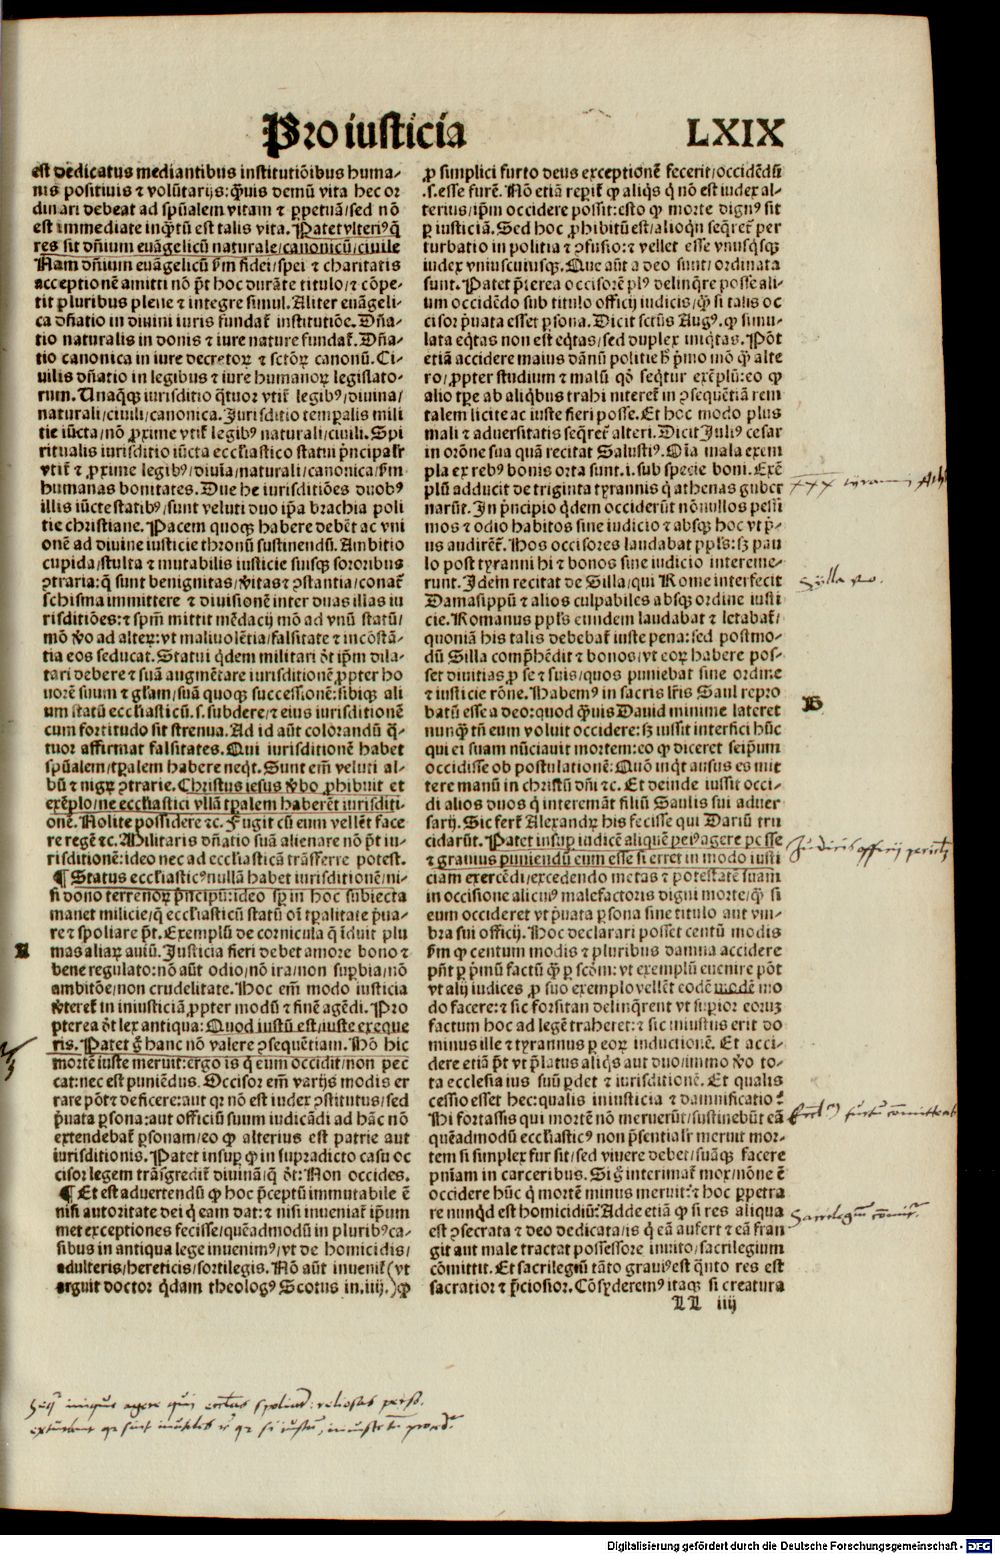 Pro iusticia
LXIX
est dedicatus mediantibus institutiõibus huma-
nis positiuis ⁊ volũtarijs: q̃uis demũ vita hec or
dinari debeat ad sp̃ualem vitam ⁊ ꝑpetuã/sed nõ
est immediate inq̃tũ est talis vita. Patet vlteriꝰ q̃
res sit dñium euãgelicũ naturale/canonicũ/ciuile
Nam dñium euãgelicũ s̃m fidei/spei ⁊ charitatis
acceptionẽ amitti nõ p̃t hoc durãte titulo/⁊ cõpe-
tit pluribus plene ⁊ integre simul. Aliter euãgeli-
ca dñatio in diuini iuris fundat̃ institutiõe. Dña-
tio naturalis in donis ⁊ iure nature fundat̃. Dña-
tio canonica in iure decretoꝝ ⁊ sctõꝝ canonũ. Ci-
uilis dñatio in legibus ⁊ iure humanoꝝ legislato-
rum. Unaq̃qꝫ iurisditio q̃tuor vtit̃ legibꝰ/diuina/
naturali/ciuili/canonica. Jurisditio temꝑalis mili
tie iũcta/nõ ꝓxime vtit̃ legibꝰ naturali/ciuili. Spi
ritualis iurisditio iũcta ecclesiastico statui p̃ncipalit̃
vtit̃ ⁊ ꝓxime legibꝰ/diuia/naturali/canonica/s̃m
humanas bonitates. Due he iurisditiões duobꝰ
illis iũcte statibꝰ/sunt veluti duo ip̃a brachia poli
tie christiane. Pacem quoqꝫ habere debẽt ac vni
onẽ ad diuine iusticie thronũ sustinendũ. Ambitio
cupida/stulta ⁊ mutabilis iusticie suisqꝫ sororibus
ꝯtraria: q̃ sunt benignitas/v̾itas ⁊ ꝯstantia/conat̃
schisma immittere ⁊ diuisionẽ inter duas illas iu
risditiões: ⁊ sp̃m mittit mẽdacij mõ ad vnũ statũ/
mõ v̾o ad alteꝝ: vt maliuolẽtia/falsitate ⁊ incõstã-
tia eos seducat. Statui q̃dem militari d̃t ip̃m dila-
tari debere ⁊ suã augmẽtare iurisditionẽ ꝓpter ho
norẽ suum ⁊ gl̃am/suã quoqꝫ successionẽ: sibiqꝫ ali
um statũ ecclesiasticũ .s. subdere/⁊ eius iurisditionẽ
cum fortitudo sit strenua. Ad id aũt colorandũ q̃-
tuor affirmat falsitates. Qui iurisditionẽ habet
sp̃ualem/tꝑalem habere neq̃t. Sunt em̃ veluti al-
bũ ⁊ nigꝝ ꝯtrarie. Christus iesus v̾bo ꝓhibuit et
exẽplo/ne ecclesiastici vllã tꝑalem haberẽt iurisditi-
onẽ. Nolite possidere ⁊c. Fugit cũ eum vellẽt face
re regẽ ⁊c. Militaris dñatio suã alienare nõ p̃t iu-
risditionẽ: ideo nec ad ecclesiasticã trãsferre potest.
¶ Status ecclesiasticꝰ nullã habet iurisditionẽ/ni-
si dono terrenoꝝ p̃ncipũ: ideo sꝑ in hoc subiecta
manet milicie/q̃ ecclesiasticũ statũ oĩ tꝑalitate p̃ua-
re ⁊ spoliare p̃t. Exemplũ de cornicula q̃ ĩduit plu
mas aliaꝝ auiũ. Justicia fieri debet amore bono ⁊
bene regulato: nõ aũt odio/nõ ira/non suꝑbia/nõ
ambitõe/non crudelitate. Hoc em̃ modo iusticia
v̾teret̃ in iniusticiã ꝓpter modũ ⁊ finẽ agẽdi. Pro
pterea d̃t lex antiqua: Quod iustũ est/iuste exeque
ris. Patet g̃ hanc nõ valere ꝯsequẽtiam. Hõ hic
mortẽ iuste meruit: ergo is q̃ eum occidit/non pec
cat: nec est puniẽdus. Occisor em̃ varijs modis er
rare põt ⁊ deficere: aut qꝛ nõ est iudex ꝯstitutus/sed
p̃uata ꝑsona: aut officiũ suum iudicãdi ad hãc nõ
extendebat̃ ꝑsonam/eo ꝙ alterius est patrie aut
iurisditionis. Patet insuꝑ ꝙ in supradicto casu oc
cisor legem trãsgredit̃ diuinã/q̃ d̃t: Non occides.
¶ Et est aduertendũ ꝙ hoc p̃ceptũ immutabile ẽ
nisi autoritate dei q̃ eam dat: ⁊ nisi inueniat̃ ip̃um
met exceptiones fecisse/quẽadmodũ in pluribꝰ ca-
sibus in antiqua lege inuenimꝰ/vt de homicidis/
adulteris/hereticis/sortilegis. Nõ aũt inuenit̃ (vt
arguit doctor q̃dam theologꝰ Scotus in .iiij.) ꝙ
ꝓ simplici furto deus exceptionẽ fecerit/occidẽdũ
.s. esse furẽ. Nõ etiã reꝑit̃ ꝙ aliq̃s q̃ nõ est iudex al-
terius/ip̃m occidere possit: esto ꝙ morte dignꝰ sit
ꝑ iusticiã. Sed hoc ꝓhibitũ est/alioq̃n seq̃ret̃ per
turbatio in politia ⁊ ꝯfusio: ⁊ vellet esse vnusq̃sqꝫ
iudex vniuscuiusqꝫ. Que aũt a deo sunt/ordinata
sunt. Patet p̃terea occisorẽ plꝰ delinq̃re posse ali-
um occidẽdo sub titulo officij iudicis/q̃ꝫ si talis oc
cisor p̃uata esset ꝑsona. Dicit sctũs Augꝰ. ꝙ simu-
lata eq̃tas non est eq̃tas/sed duplex iniq̃tas. Põt
etiã accidere maius dãnũ politie h̾ p̃mo mõ q̃ꝫ alte
ro/ꝓpter studium ⁊ malũ qd̾ seq̃tur exẽplũ: eo ꝙ
alio tꝑe ab aliq̃bus trahi interet̃ in ꝯsequẽtiã rem
talem licite ac iuste fieri posse. Et hoc modo plus
mali ⁊ aduersitatis seq̃ret̃ alteri. Dicit Juliꝰ cesar
in orõne sua quã recitat Salustiꝰ. Oĩa mala exem
pla ex rebꝰ bonis orta sunt .i. sub specie boni. Exẽ
plũ adducit de triginta tyrannis q̃ athenas guber
narũt. Jn p̃ncipio q̃dem occiderũt nõnullos pessi
mos ⁊ odio habitos sine iudicio ⁊ absqꝫ hoc vt p̃-
us audirẽt̃. Hos occisores laudabat ppl̃s: sꝫ pau
lo post tyranni hi ⁊ bonos sine iudicio intereme-
runt. Jdem recitat de Silla/qui Rome interfecit
Damasippũ ⁊ alios culpabiles absqꝫ ordine iusti
cie. Romanus ppl̃s eundem laudabat ⁊ letabat̃/
quoniã his talis debebat̃ iuste pena: sed postmo-
dũ Silla comp̃hẽdit ⁊ bonos/vt eoꝝ habere pos-
set diuitias ꝓ se ⁊ suis/quos puniebat sine ordine
⁊ iusticie rõne. Habemꝰ in sacris lr̃is Saul repro
batũ esse a deo: quod q̃uis Dauid minime lateret
nunq̃ꝫ tñ eum voluit occidere: sꝫ iussit interfici hũc
qui ei suam nũciauit mortem: eo ꝙ diceret seip̃um
occidisse ob postulationẽ: Quõ inq̃t ausus es mit
tere manũ in christũ dñi ⁊c. Et deinde iussit occi-
di alios duos q̃ interemãt filiũ Saulis sui aduer
sarij. Sic fert̃ Alexandꝝ his fecisse qui Dariũ tru
cidarũt. Patet insuꝑ iudicẽ aliquẽ peiꝰ agere posse
⁊ grauius puniendũ eum esse si erret in modo iusti
ciam exercẽdi/excedendo metas ⁊ potestatẽ suam
in occisione alicuiꝰ malefactoris digni morte/q̃ꝫ si
eum occideret vt p̃uata ꝑsona sine titulo aut vm-
bra sui officij. Hoc declarari posset centũ modis
s̃m ꝙ centum modis ⁊ pluribus damna accidere
pñt ꝑ p̃mũ factũ q̃ꝫ ꝑ scdm̃: vt exemplũ euenire põt
vt alij iudices ꝓ suo exemplo vellẽt eodẽ modẽ mo
do facere: ⁊ sic forsitan delinq̃rent vt suꝑior eoruꝫ
factum hoc ad legẽ traheret: ⁊ sic iniustus erit do
minus ille ⁊ tyrannus ꝑ eoꝝ inductionẽ. Et acci-
dere etiã p̃t vt p̃latus aliq̃s aut duo/immo v̾o to-
ta ecclesia ius suũ ꝑdet ⁊ iurisditionẽ. Et qualis
cessio esset hec: qualis iniusticia ⁊ damnificatio?
Hi fortassis qui mortẽ nõ meruerũt/sustinebũt eã
quẽadmodũ ecclesiasticꝰ non p̃sentialit̃ meruit mor-
tem si simplex fur sit/sed viuere debet/suãqꝫ facere
pniam in carceribus. Si g̃ interimat̃ mox/nõne ẽ
occidere hũc q̃ mortẽ minus meruit? ⁊ hoc ꝑpetra
re nunq̃d est homicidiũ? Adde etiã ꝙ si res aliqua
est ꝯsecrata ⁊ deo dedicata/is q̃ eã aufert ⁊ eã fran
git aut male tractat possessore inuito/sacrilegium
cõmittit. Et sacrilegiũ tãto grauiꝰ est q̃nto res est
sacratior ⁊ p̃ciosior. Cõsyderemꝰ itaqꝫ si creatura
LL iiij
A
B
xxx tyranni Ath
Sylla Ro.
Judicis officij